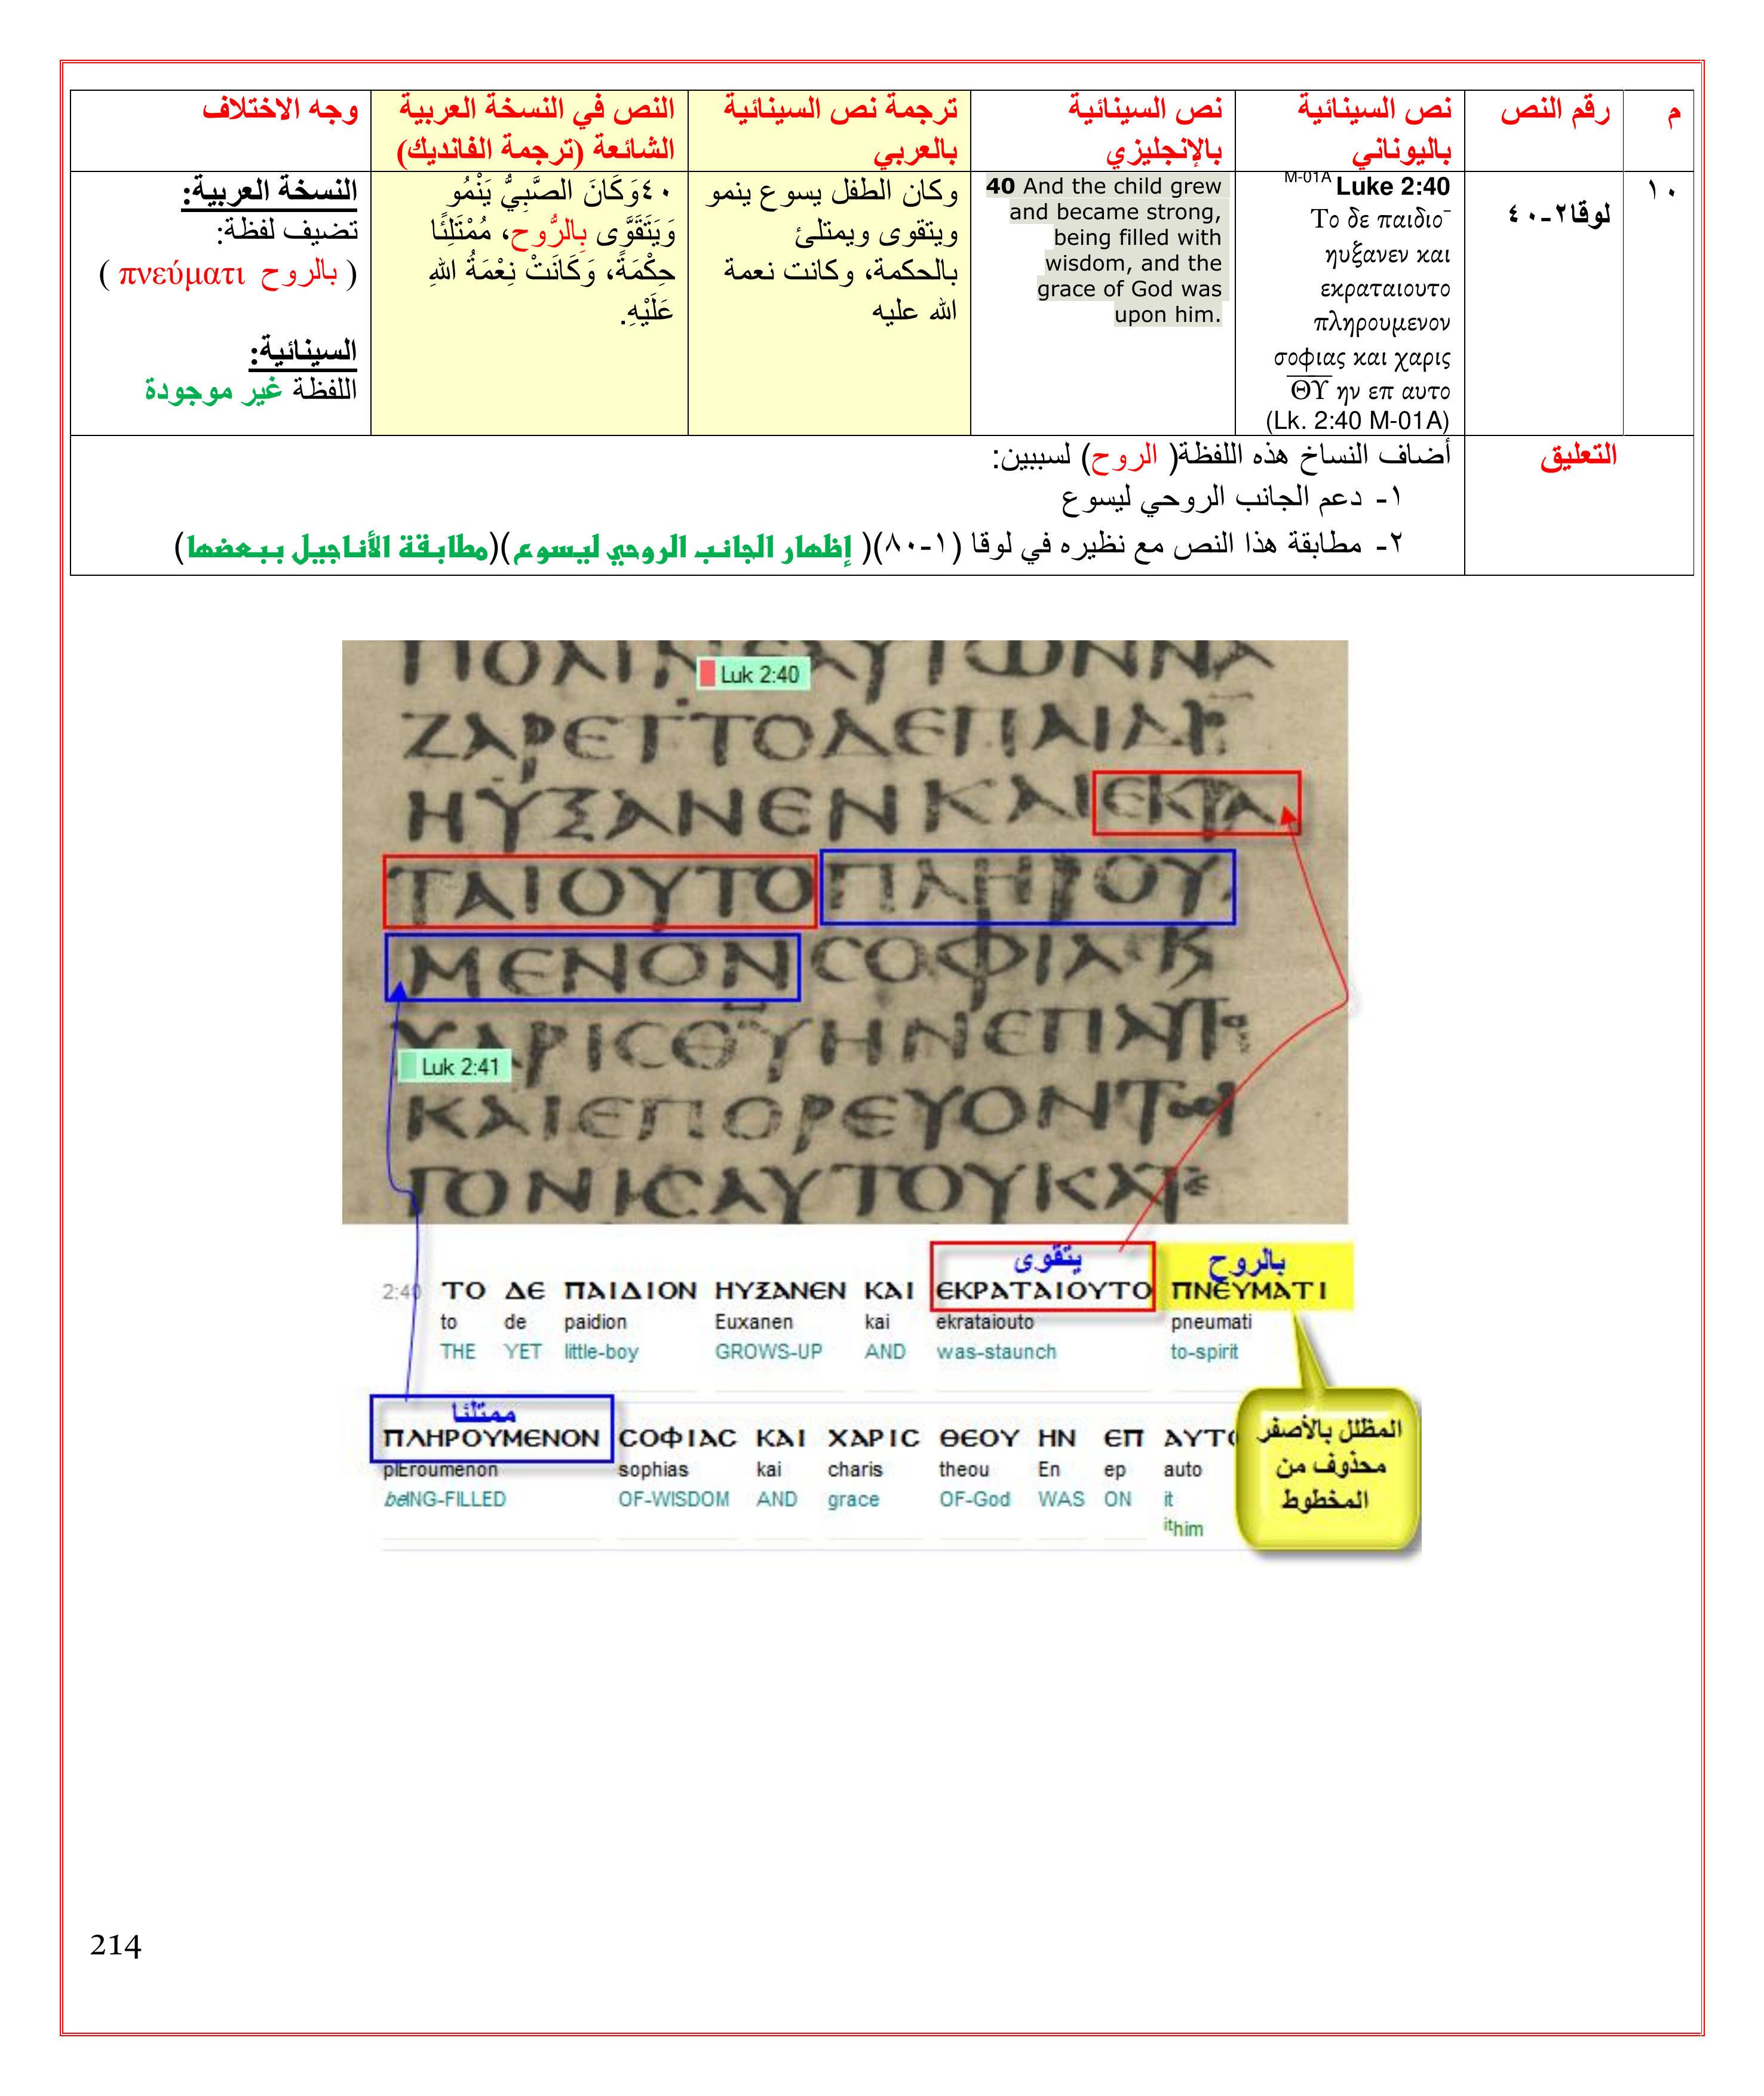 م
رقم النص
نص السينائية
باليوناني
نص السينائية
بالإنجليزي
ترجمة نص السينائية
بالعربي
النص في النسخة العربية
الشائعة (ترجمة الفانديك)
وجه الاختلاف
١٠
لوقا٢-٤٠
M-01A Luke 2:40
Το δε παιδιο¯
ηυξανεν και
εκραταιουτο
πληρουμενον
σοφιας και χαρις
ΘΥ ην επ αυτο
(Lk. 2:40 M-01A)
40 And the child grew
and became strong,
being filled with
wisdom, and the
grace of God was
upon him.
وكان الطفل يسوع ينمو
ويتقوى ويمتلئ
بالحكمة، وكانت نعمة
الله عليه
٤٠وَكَانَ الصَّبِيُّ يَنْمُو
وَيَتَقَوَّى بِالرُّوحِ، مُمْتَلِئًا
حِكْمَةً، وَكَانَتْ نِعْمَةُ اللهِ
عَلَيْهِ.
النسخة العربية:
تضيف لفظة:
( بالروح πνεύματι )
السينائية:
اللفظة غير موجودة
التعليق
أضاف النساخ هذه اللفظة( الروح) لسببين:
١- دعم الجانب الروحي ليسوع
٢- مطابقة هذا النص مع نظيره في لوقا (١-٨٠)( إظهار الجانب الروحي ليسوع)(مطابقة الأناجيل ببعضها)
Luk 2:40
ΖΑΡΕΤΤΟΔΕΠΑΙΔΙ
ΗΥΞΑΝΕΝΚΑΙΕΚΡΑ
ΤΑΙΟΥΤΟΠΛΗΡΟΥ
ΜΕΝΟΝΣΟΦΙΑΚ
ΧΑΡΙCΘΥΗΝΕΠΑΥΤ
Luk 2:41
ΚΑΙΕΠΟΡΕΥΟΝΤ
ΓΟΝΙCΑΥΤΟΥΚΑΤ
يتقوى بالروح
2:40 ΤΟ ΔΕ ΠΑΙΔΙΟΝ ΗΥΞΑΝΕΝ ΚΑΙ ΕΚΡΑΤΑΙΟΥΤΟ ΠΝΕΥΜΑΤΙ
to de paidion Euxanen kai ekrataiouto pneumati
THE YET little-boy GROWS-UP AND was-staunch to-spirit
ممتلئا
ΠΛΗΡΟΥΜΕΝΟΝ CΟΦΙΑC ΚΑΙ ΧΑΡΙC ΘΕΟΥ ΗΝ ΕΠ ΑΥΤΟ
plEroumenon sophias kai charis theou En ep auto
beING-FILLED OF-WISDOM AND grace OF-God WAS ON it
ithim
المظلل بالأصفر
محذوف من
المخطوط
214